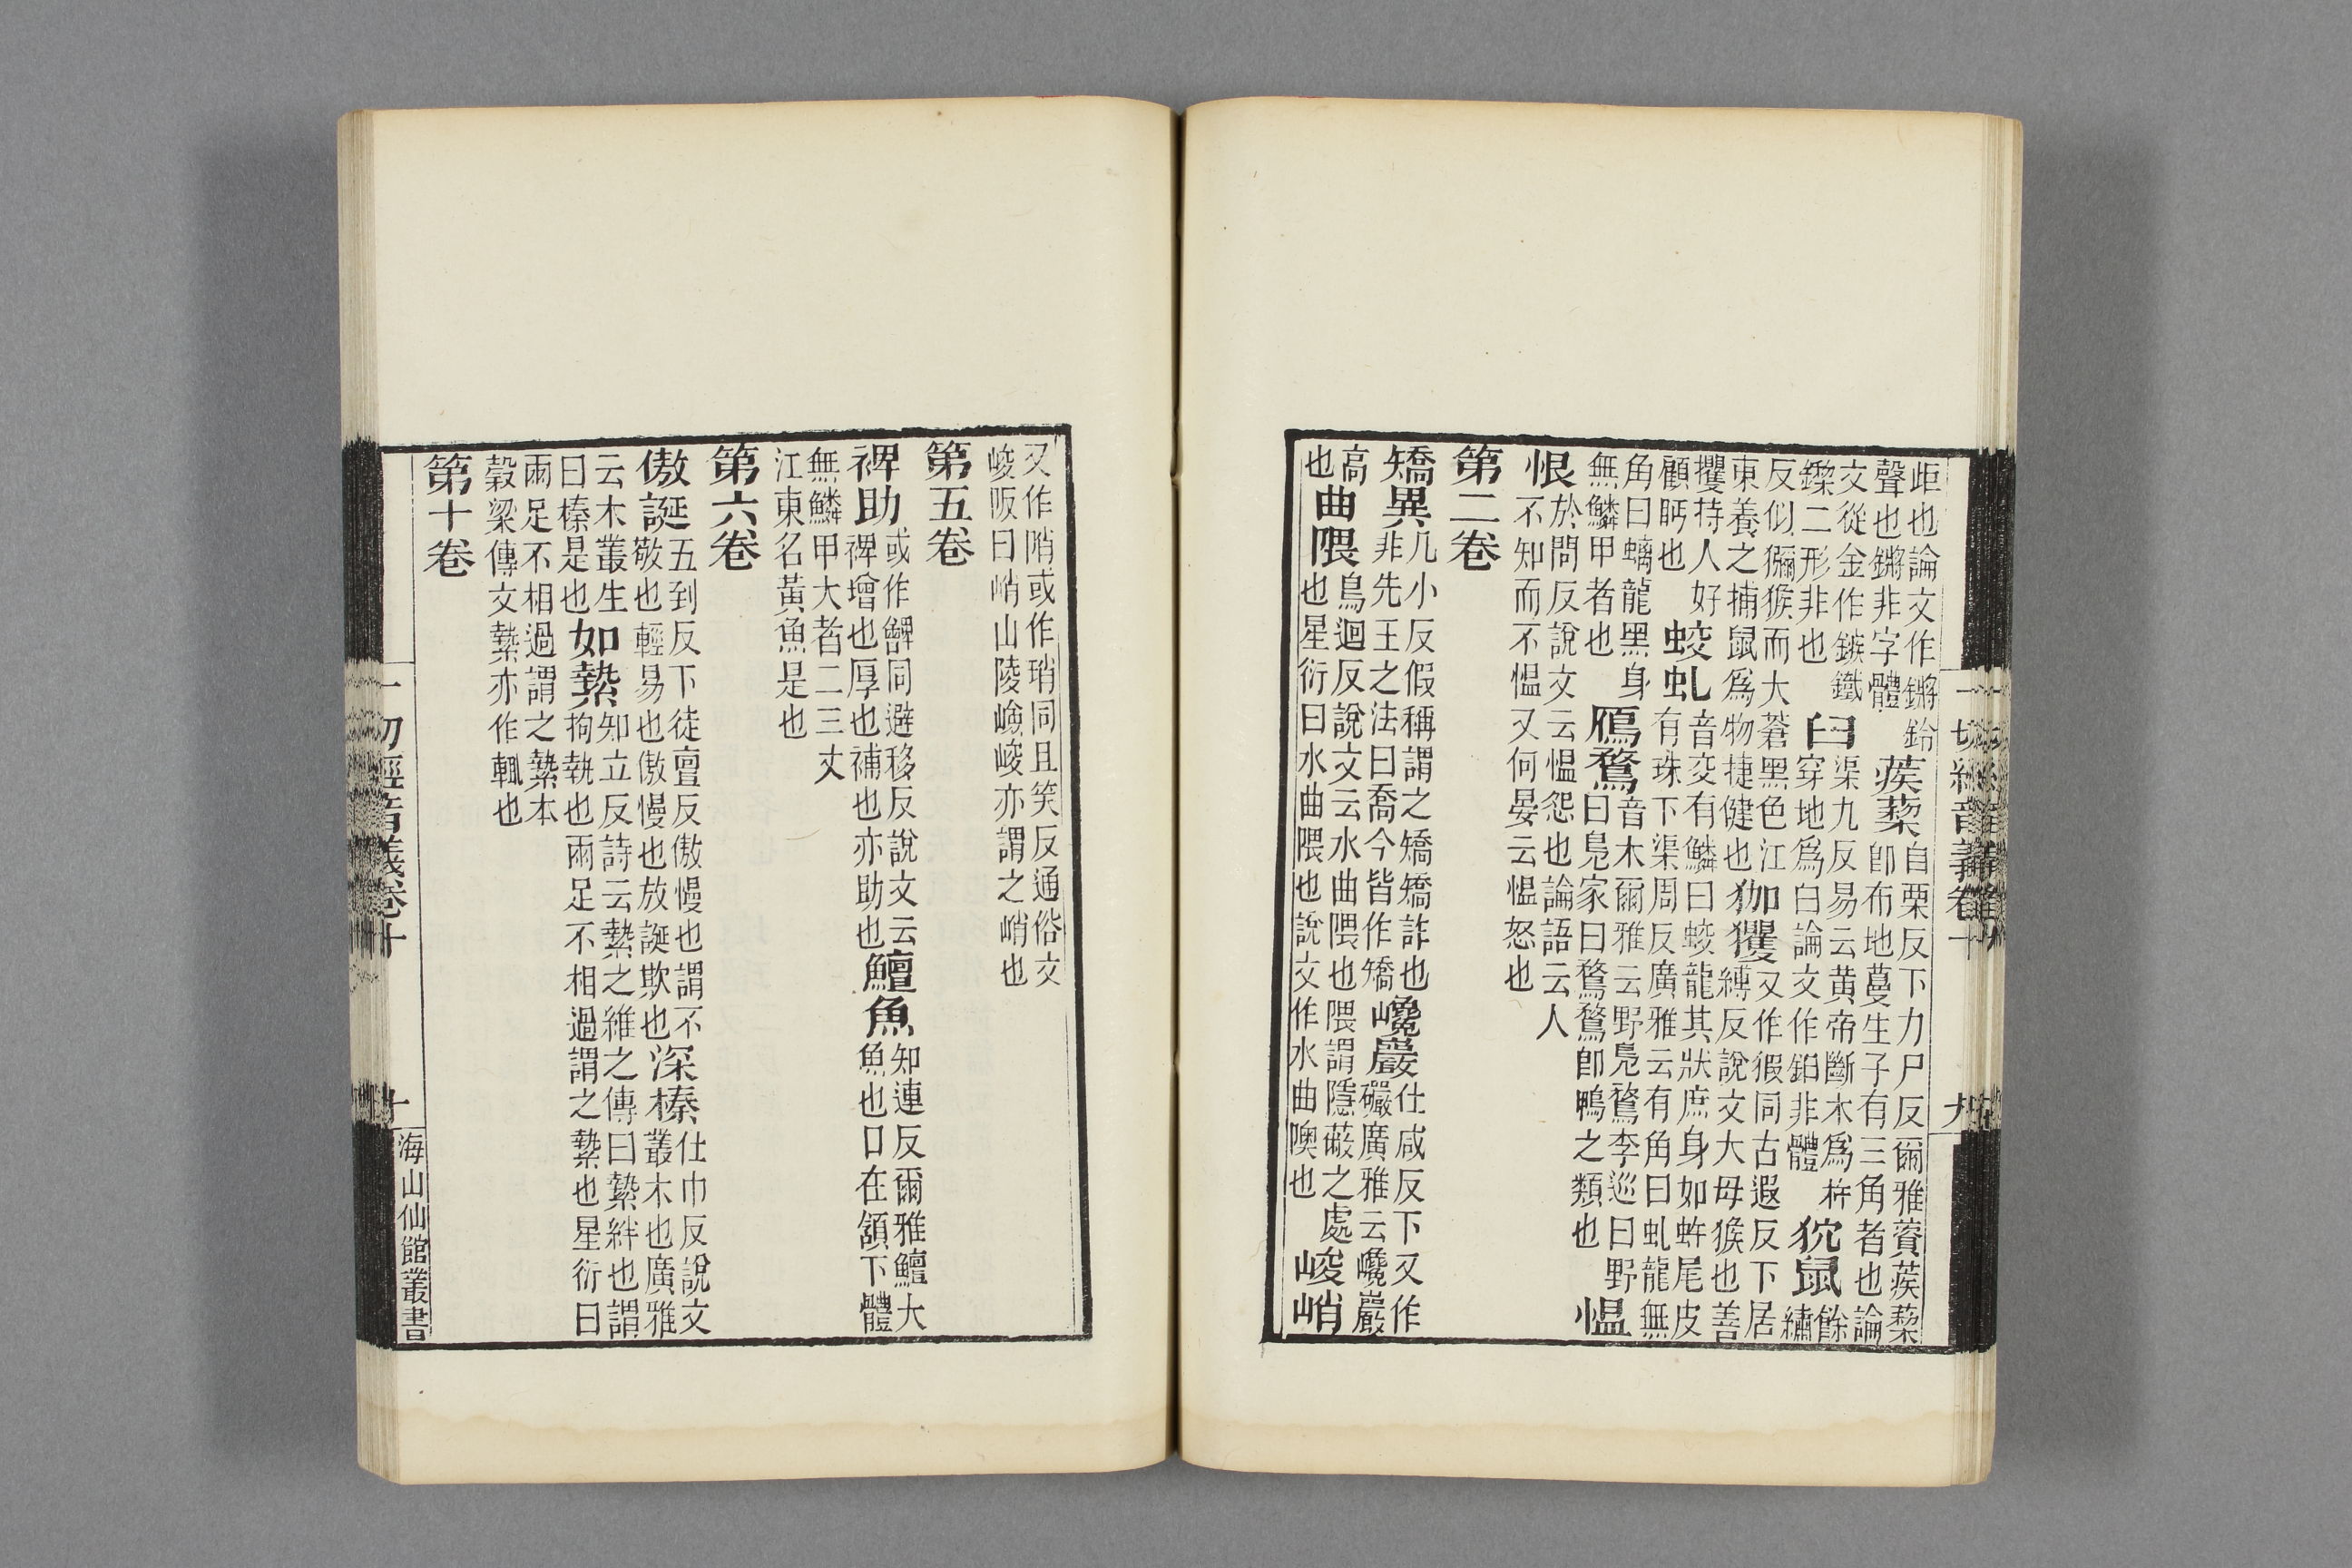 歫也論文作鏘鈴
聲也鏘非字體
蒺蔾自栗反下力尸反爾雅薋蒺蔾
即布地蔓生子有三角者也論
文從金作鏃鐵
鏫二形非也
臼渠九反易云黃帝斷木為杵
穿地為臼論文作䦿非體
狖鼠餘繡
反似獼猴而大蒼黑色江
東養之捕鼠為物捷健也
猳玃又作猳同古遐反下居
縛反說文大母猴也善
攫持人好
顧眄也
蛟虬音交有鱗曰蛟龍其狀庶身如蚌尾皮
有珠下渠周反廣雅云有角曰虬龍無
角曰螭龍黑身
無鱗甲者也
鴈鶩音木爾雅云野鳧鶩李巡曰野
曰鳧家曰鶩鶩即鴨之類也
慍
恨於問反說文云慍怨也論語云人
不知而不慍又何晏云慍怒也
第二卷
矯異几小反假稱謂之矯矯詐也
非先王之法曰喬今皆作矯
巉巖仕咸反下又作
礹廣雅云巉巖
高
也
曲隈烏迴反說文云水曲隈也隈謂隱蔽之處
也星衍曰水曲隈也說文作水曲隩也
峻峭
又作陗或作䂗同且笑反通俗文
峻阪曰峭山陵嶮峻亦謂之峭也
第五卷
裨助或作䚹同避移反說文云
裨增也厚也補也亦助也
鱣魚知連反爾雅鱣大
魚也口在頷下體
無鱗甲大者二三丈
江東名黃魚是也
第六卷
傲誕五到反下徒亶反傲慢也謂不
敬也輕易也傲慢也放誕欺也
深榛仕巾反說文
叢木也廣雅
云木叢生
曰榛是也
如縶知立反詩云縶之維之傳曰縶絆也謂
拘執也兩足不相過謂之縶也星衍曰
兩足不相過謂之縶本
穀梁傳文縶亦作輒也
第十卷
一切經音義卷十
九
一切經音義卷十
十
海山仙館叢書